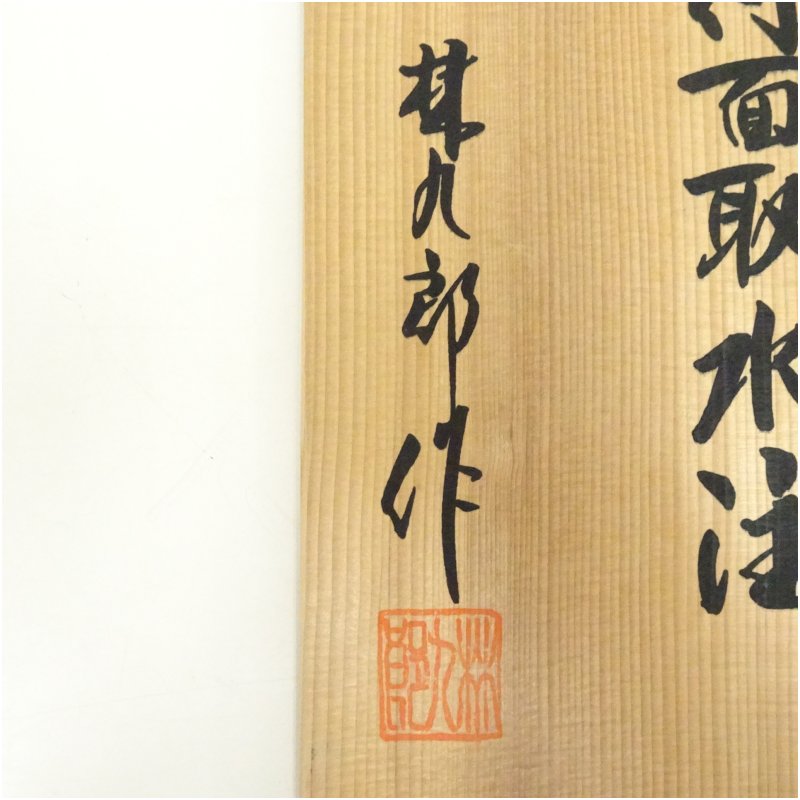 面取水注
林九郎作
林九郎